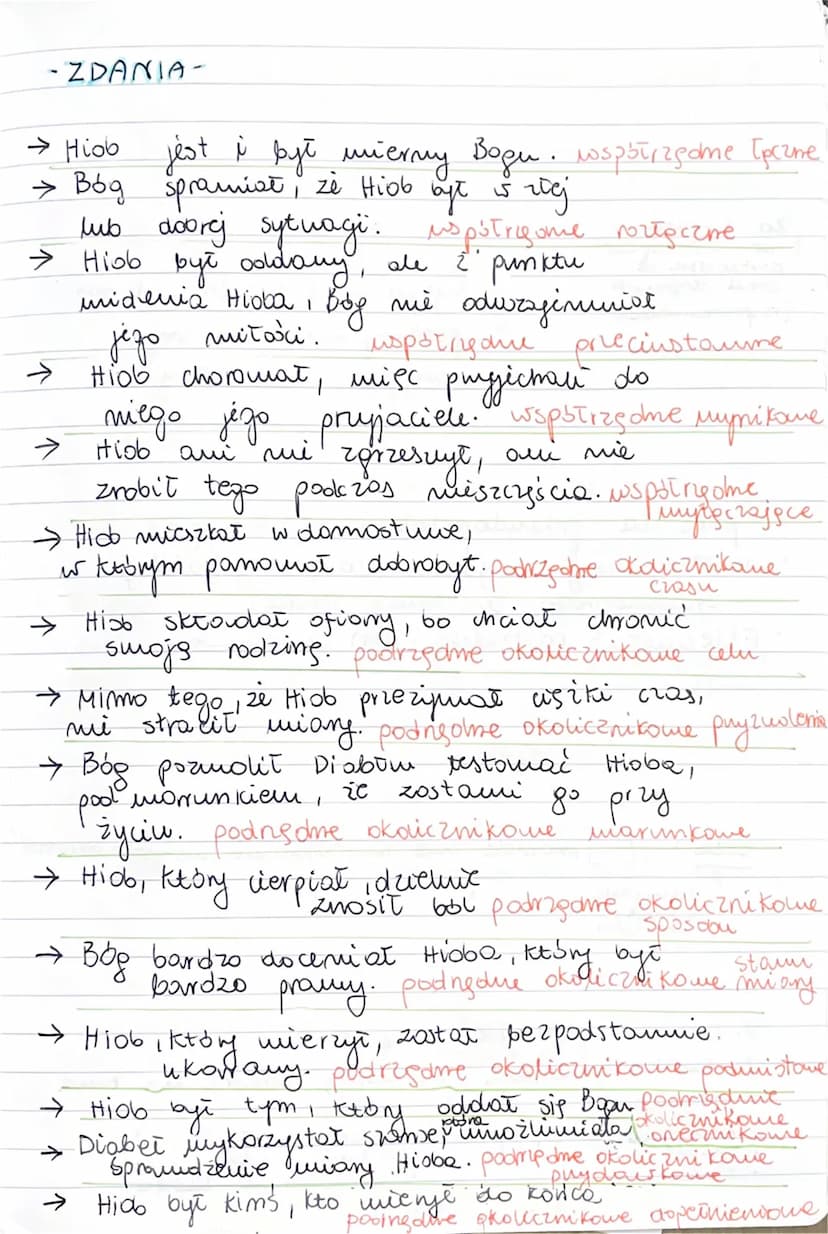 - ZDANIA -
→ Hiob jest i był wierny Bogu. współrzędne łączne
→ Bóg sprawiał, że Hiob był w złej
lub dobrej sytuacji. współrzędne rozłączne
→ Hiob był oddany, ale z punktu
widzenia Hioba, Bóg nie odwzajemniał
jego miłości. współrzędne przeciwstawne
→ Hiob chorował, więc przyjechali do
niego jego przyjaciele. współrzędne wynikowe
→ Hiob ani nie zgrzeszył, ani nie
zrobił tego podczas nieszczęścia. współrzędne
wyłączające
→ Hiob mieszkał w domostwie,
w którym panował dobrobyt. podrzędne okolicznikowe
czasu
→ Hiob składał ofiary, bo chciał chronić
swoją rodzinę. podrzędne okolicznikowe celu
→ Mimo tego, że Hiob przeżywał ciężki czas,
nie stracił wiary. podrzędne okolicznikowe przyzwolenia
→ Bóg pozwolił Diabłu testować Hioba,
pod warunkiem, że zostawi go przy
życiu. podrzędne okolicznikowe warunkowe
→ Hiob, który cierpiał, dzielnie
znosił ból podrzędne okolicznikowe
sposobu
→ Bóg bardzo doceniał Hioba, który był stanu
bardzo prawy. podrzędne okolicznikowe miary
→ Hiob, który wierzył, został bezpodstawnie.
ukarany. podrzędne okolicznikowe podmiotowe
→ Hiob był tym, który oddał się Bogu podrzędnie
okolicznikowe
orzecznikowe
→ Diabeł wykorzystał szansę, która umożliwiała
sprawdzenie wiary Hioba. podrzędne okolicznikowe
przydawkowe
→ Hiob był kimś, kto wierzył do końca
podrzędne okolicznikowe dopełnieniowe